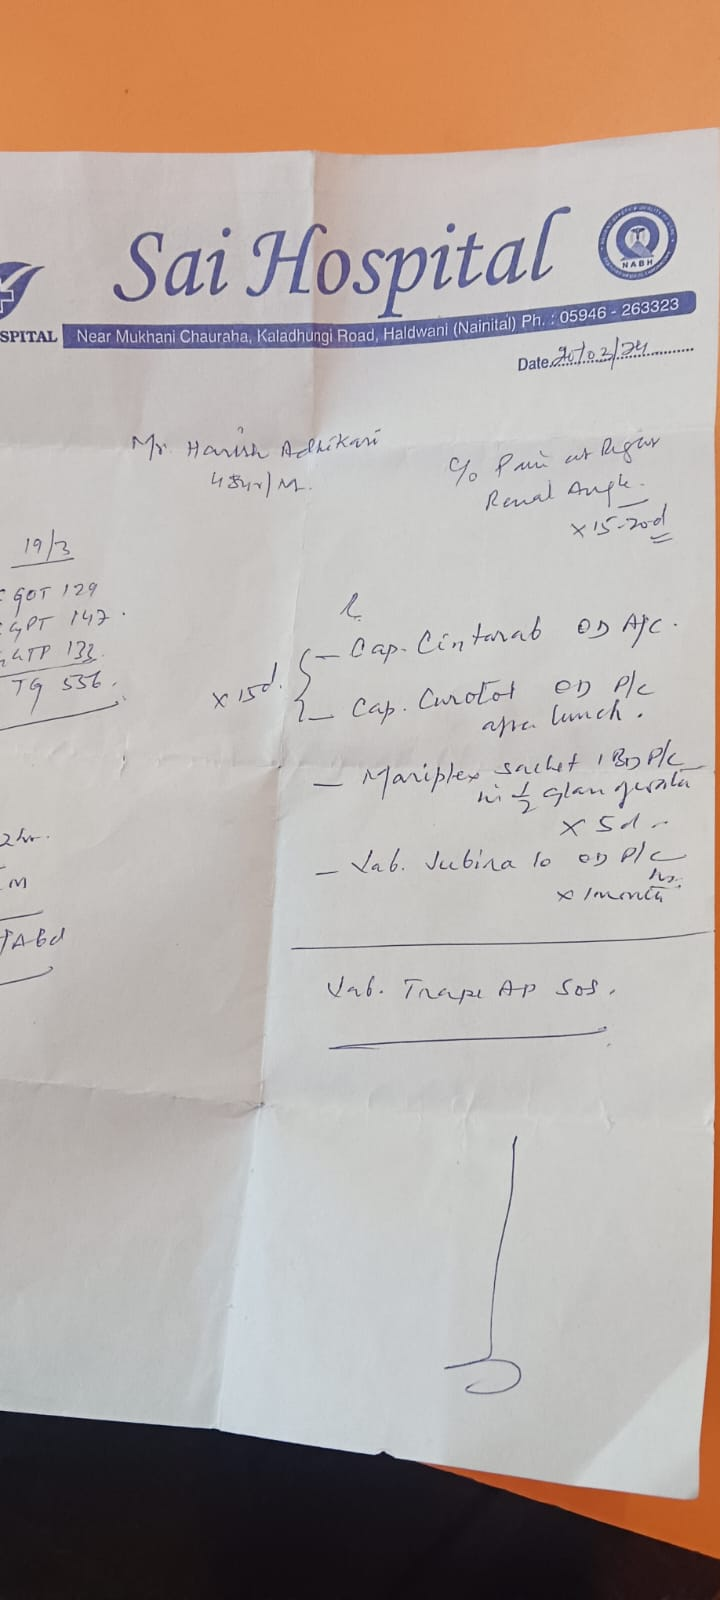 Sai Hospital
NABH
SPITAL
Near Mukhani Chauraha, Kaladhungi Road, Haldwani (Nainital) Ph. : 05946 - 263323
Date 20/03/24
Mr. Harish Adhikari
48yr/M.
C/o Pain at Right
Renal Angle.
x 15-20d
19/3
GOT 129
GPT 147
GTP 133
TG 536.
x 15d.
- Cap. Cintarab OD A/c.
- Cap. Curotol OD P/c
after lunch.
- Mariplex sachet 1 BD P/c
in 1/2 glass
x 5d
- Tab. Jubira 10 OD P/c
hs.
x 1 month
2hr.
M
TAbd
Tab. Trape AP SOS.